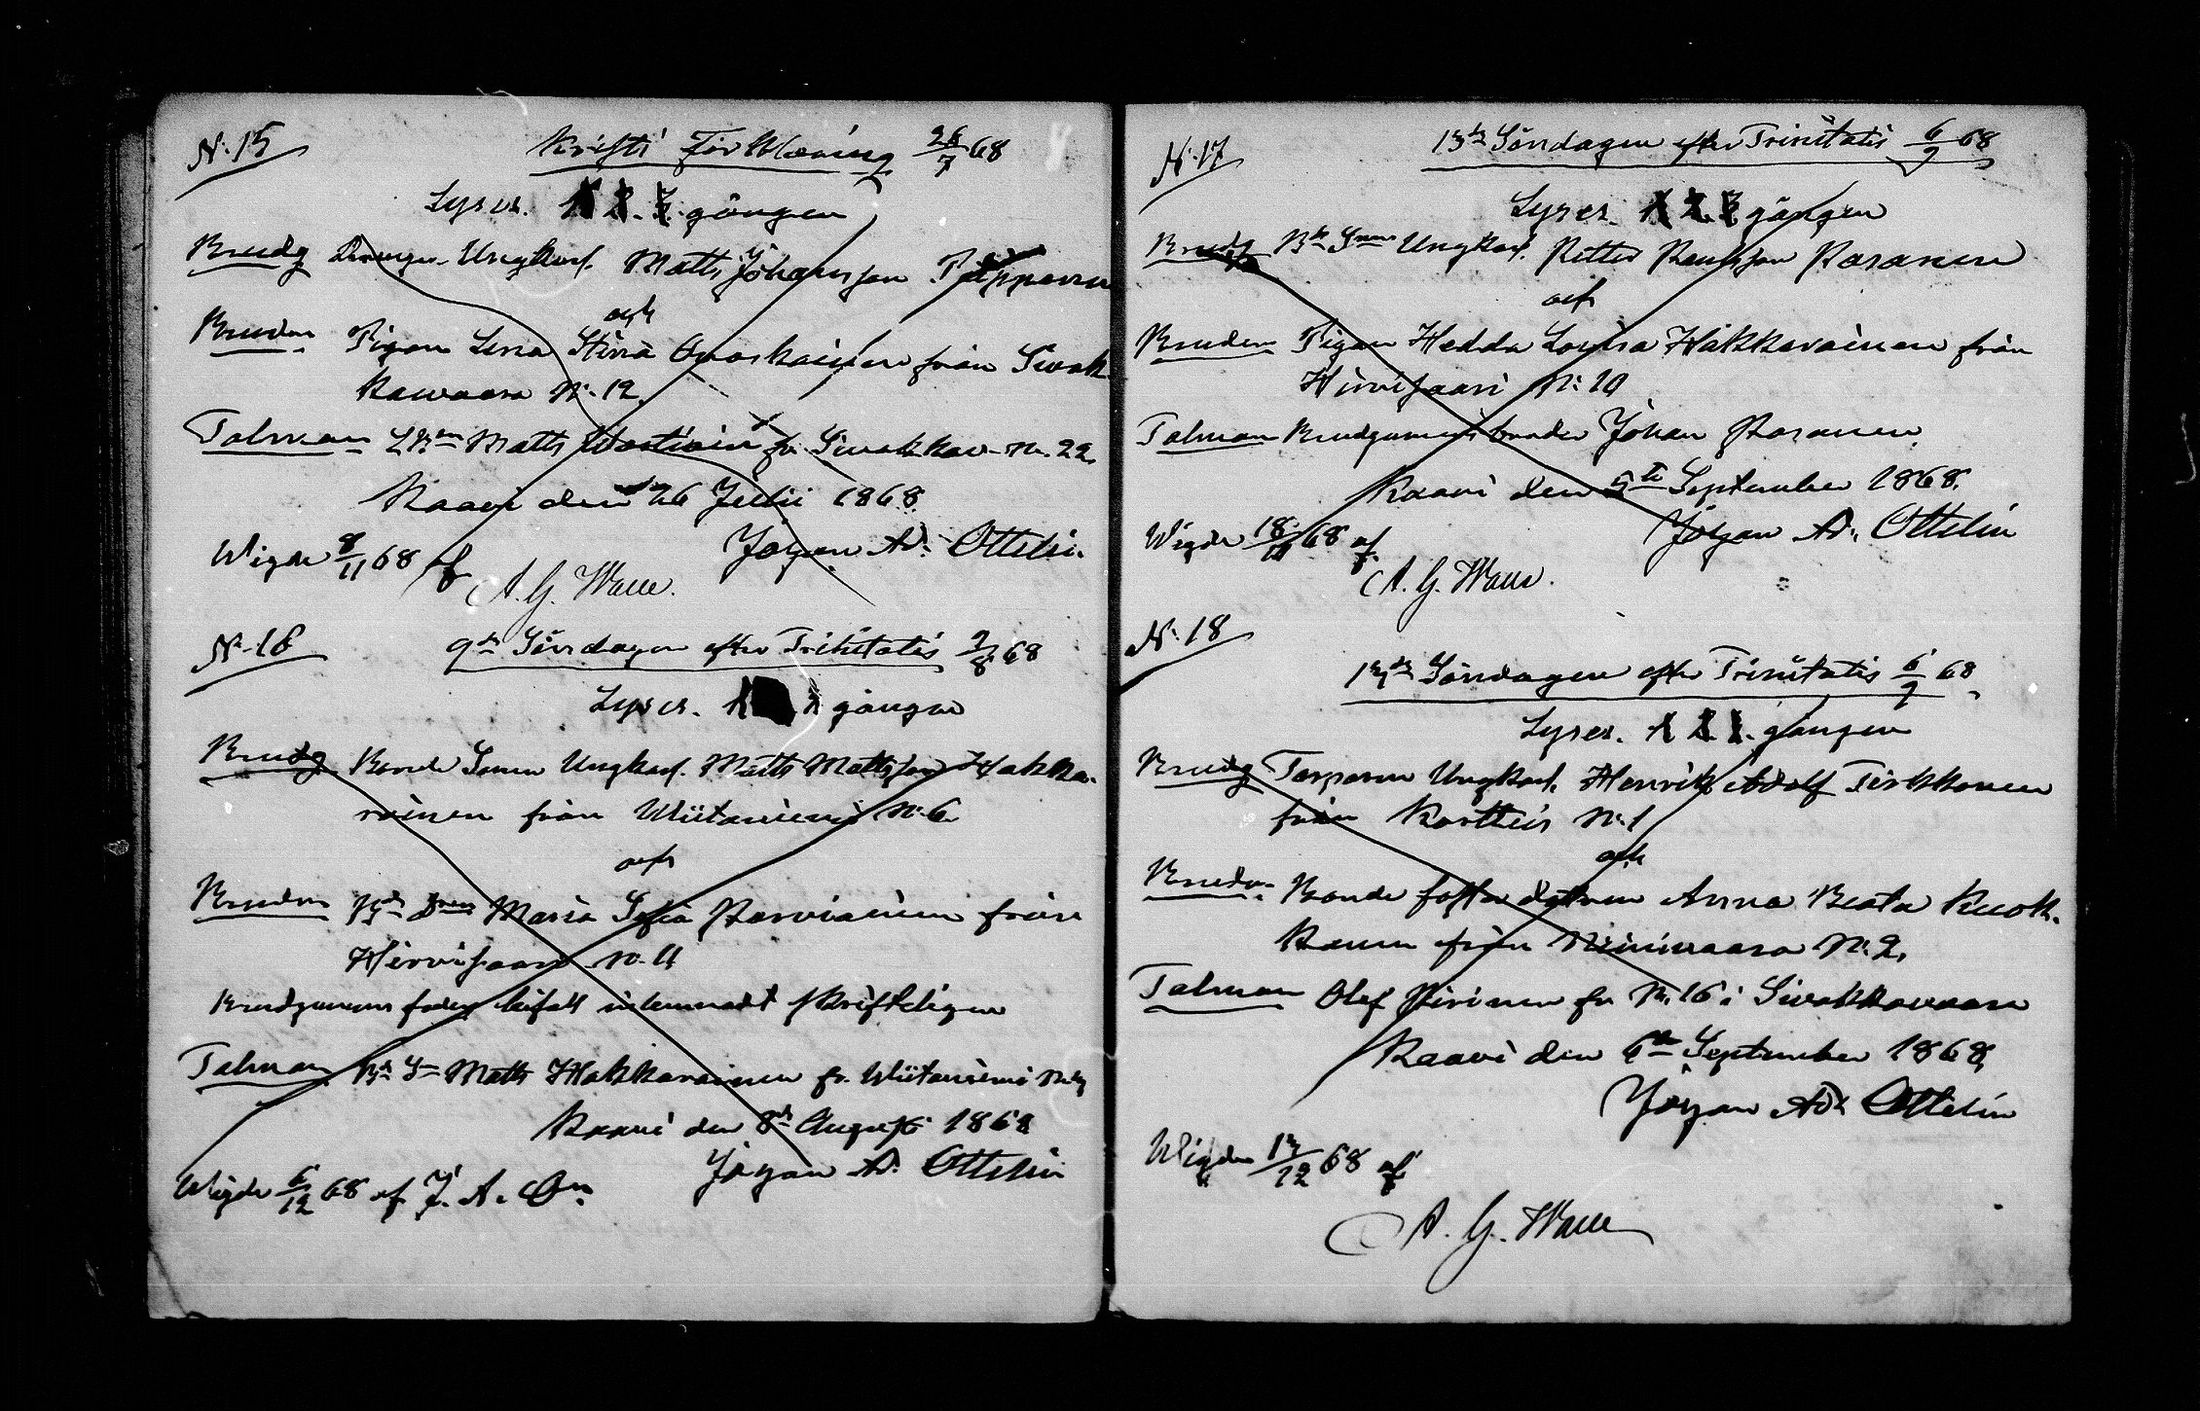 N:15
Kristi Förklaring 26/7 68
Lyses. 1. 2. 3. gången
Brudg Drengen Ungkarl. Matts Johansson Papponen
och
Bruden Pigan Lena Stina Onoskainen från Sivak-
kavaara N:12.
Talman Matts fr. Sivakkav. N. 22.
Kaavi den 26 Julii 1868.
Johan Ad. Ottelin.
Wigde 8/11 68 af
A. G. Walle.
N:16
9de Söndagen efter Trinitatis 9/8 68
Lyses. 1 3 gången
Brudg Bonde Sonen Ungkarl. Matts Mattsson Hakka-
rainen från Niitaniemi N:6
och
Bruden Bde Dren Maria Sofia Parviainen från
Hirvisaari N. 11
Brudgummens fader bifall inlemnadt skrifteligen
Talman Bde Sn Matts Hakkarainen fr. Niitaniemi
Kaavi den 8de Augusti 1868
Johan Ad. Ottelin
Wigde 6/12 68 af J. A. On
N:17
13de Söndagen efter Trinitatis 6/9 68
Lyses. 1 2. 3 gången
Brudg Bde Sonen Ungkarl. Petter Paulsson Rasanen
och
Bruden Pigan Hedda Lovisa Hakkarainen från
Hirvisaari N:10
Talman Brudgummens broder Johan Rasanen.
Kaavi den 5te September 1868.
Johan Ad. Ottelin
Wigde 18/ 68 af
A. G. Walle.
N:18
13de Söndagen efter Trinitatis 6/9 68
Lyses. 1 2. 3. gången
Brudg Torparen Ungkarl. Henrik Adolf Tirkkonen
från Kortteis N:1
och
Bruden Bonde foster dottren Anna Beata Ruok-
kanen från Niinivaara N:2.
Talman Olof Piirinen fr N. 16 i Sivakkavaara
Kaavi den 6te September 1868
Johan Ad. Ottelin
Wigde 13/12 68 af
A. G. Walle